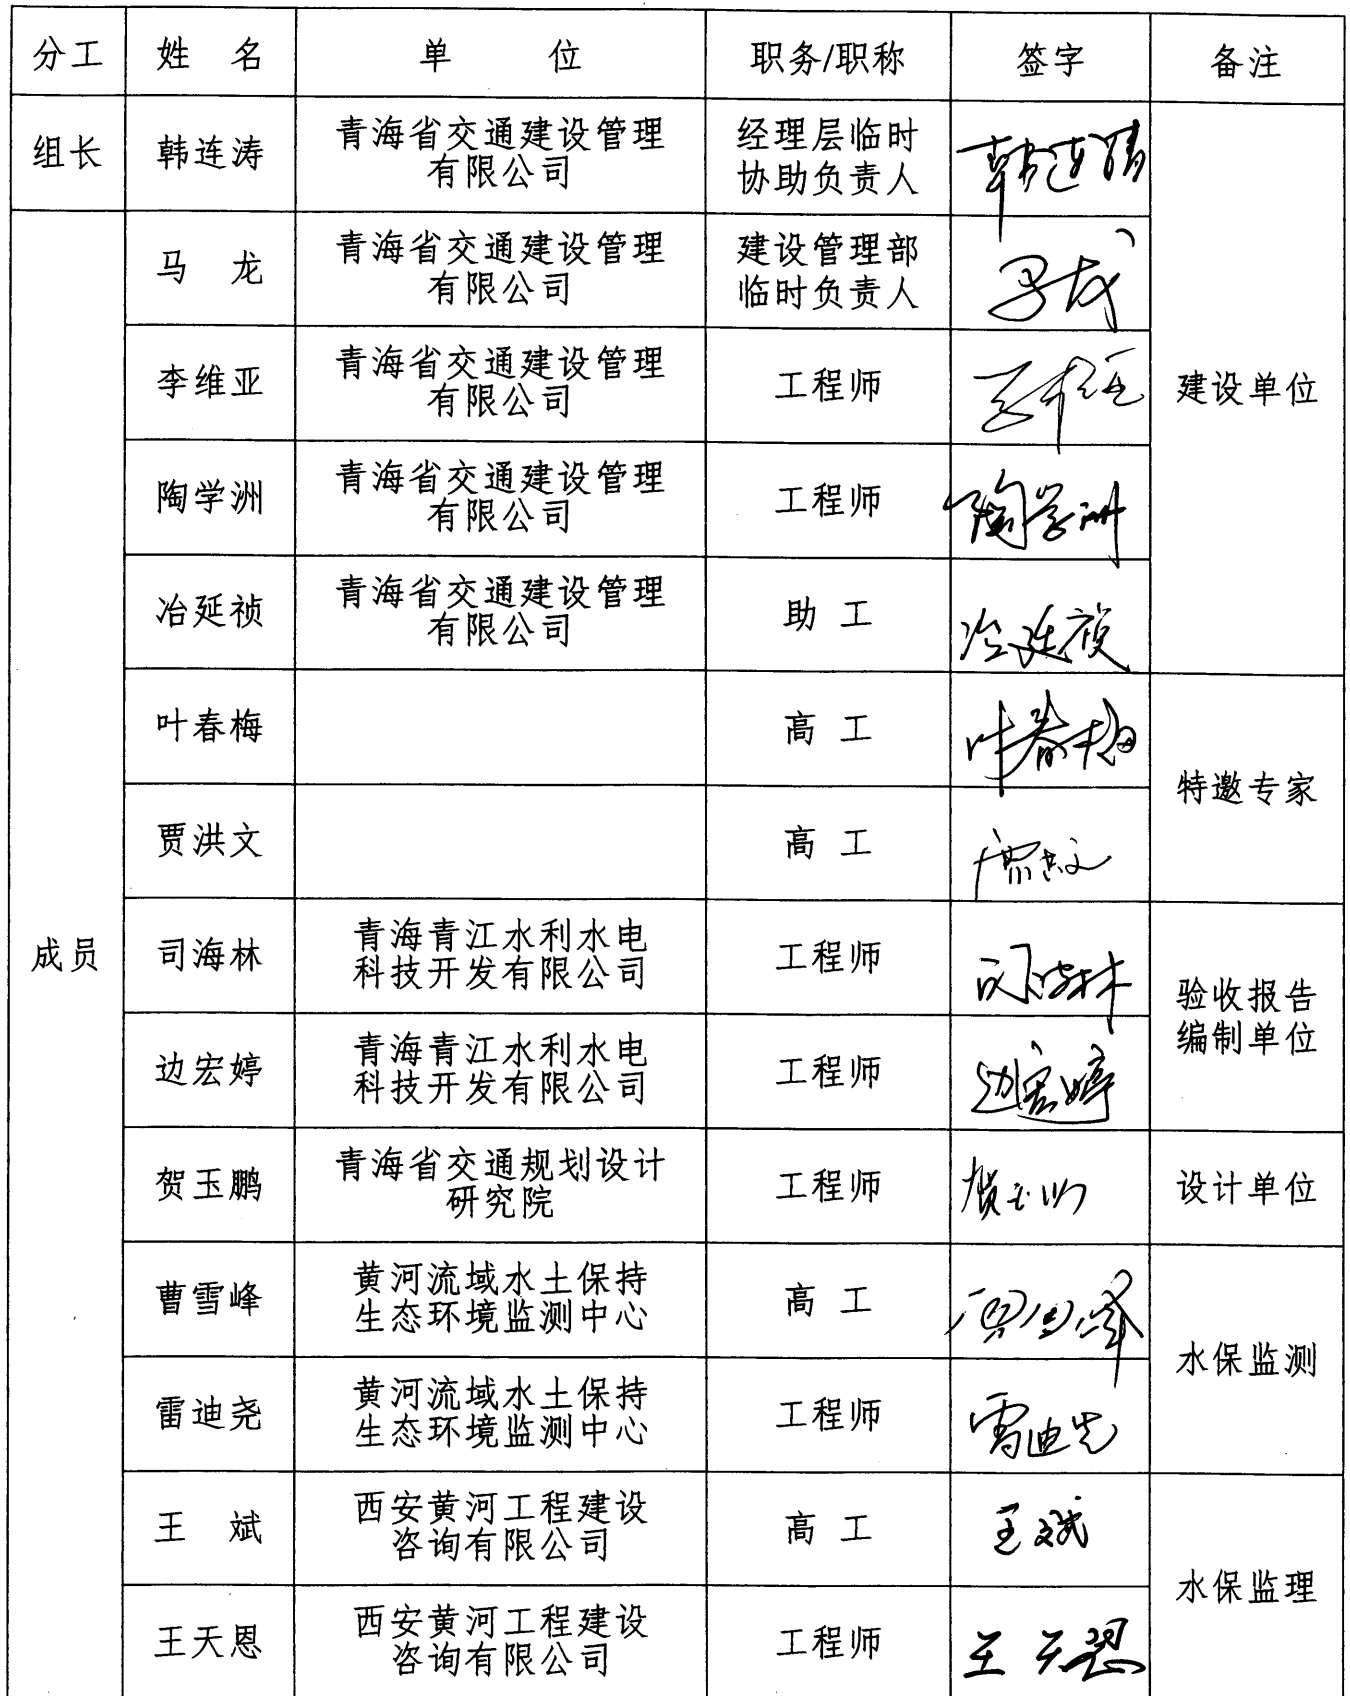 分工 姓 名 单 位 职务/职称 签字 备注
组长 韩连涛 青海省交通建设管理 有限公司 经理层临时 协助负责人 韩连涛
建设单位
成员
马 龙 青海省交通建设管理 有限公司 建设管理部 临时负责人 马龙
李维亚 青海省交通建设管理 有限公司 工程师 李维亚
陶学洲 青海省交通建设管理 有限公司 工程师 陶学洲
冶延祯 青海省交通建设管理 有限公司 助 工 冶延祯
叶春梅 高 工 叶春梅
特邀专家
贾洪文 高 工 贾洪文
司海林 青海青江水利水电 科技开发有限公司 工程师 司海林
验收报告
编制单位
边宏婷 青海青江水利水电 科技开发有限公司 工程师 边宏婷
贺玉鹏 青海省交通规划设计 研究院 工程师 贺玉鹏 设计单位
曹雪峰 黄河流域水土保持 生态环境监测中心 高 工 曹雪峰
水保监测
雷迪尧 黄河流域水土保持 生态环境监测中心 工程师 雷迪尧
王 斌 西安黄河工程建设 咨询有限公司 高 工 王斌
水保监理
王天恩 西安黄河工程建设 咨询有限公司 工程师 王天恩